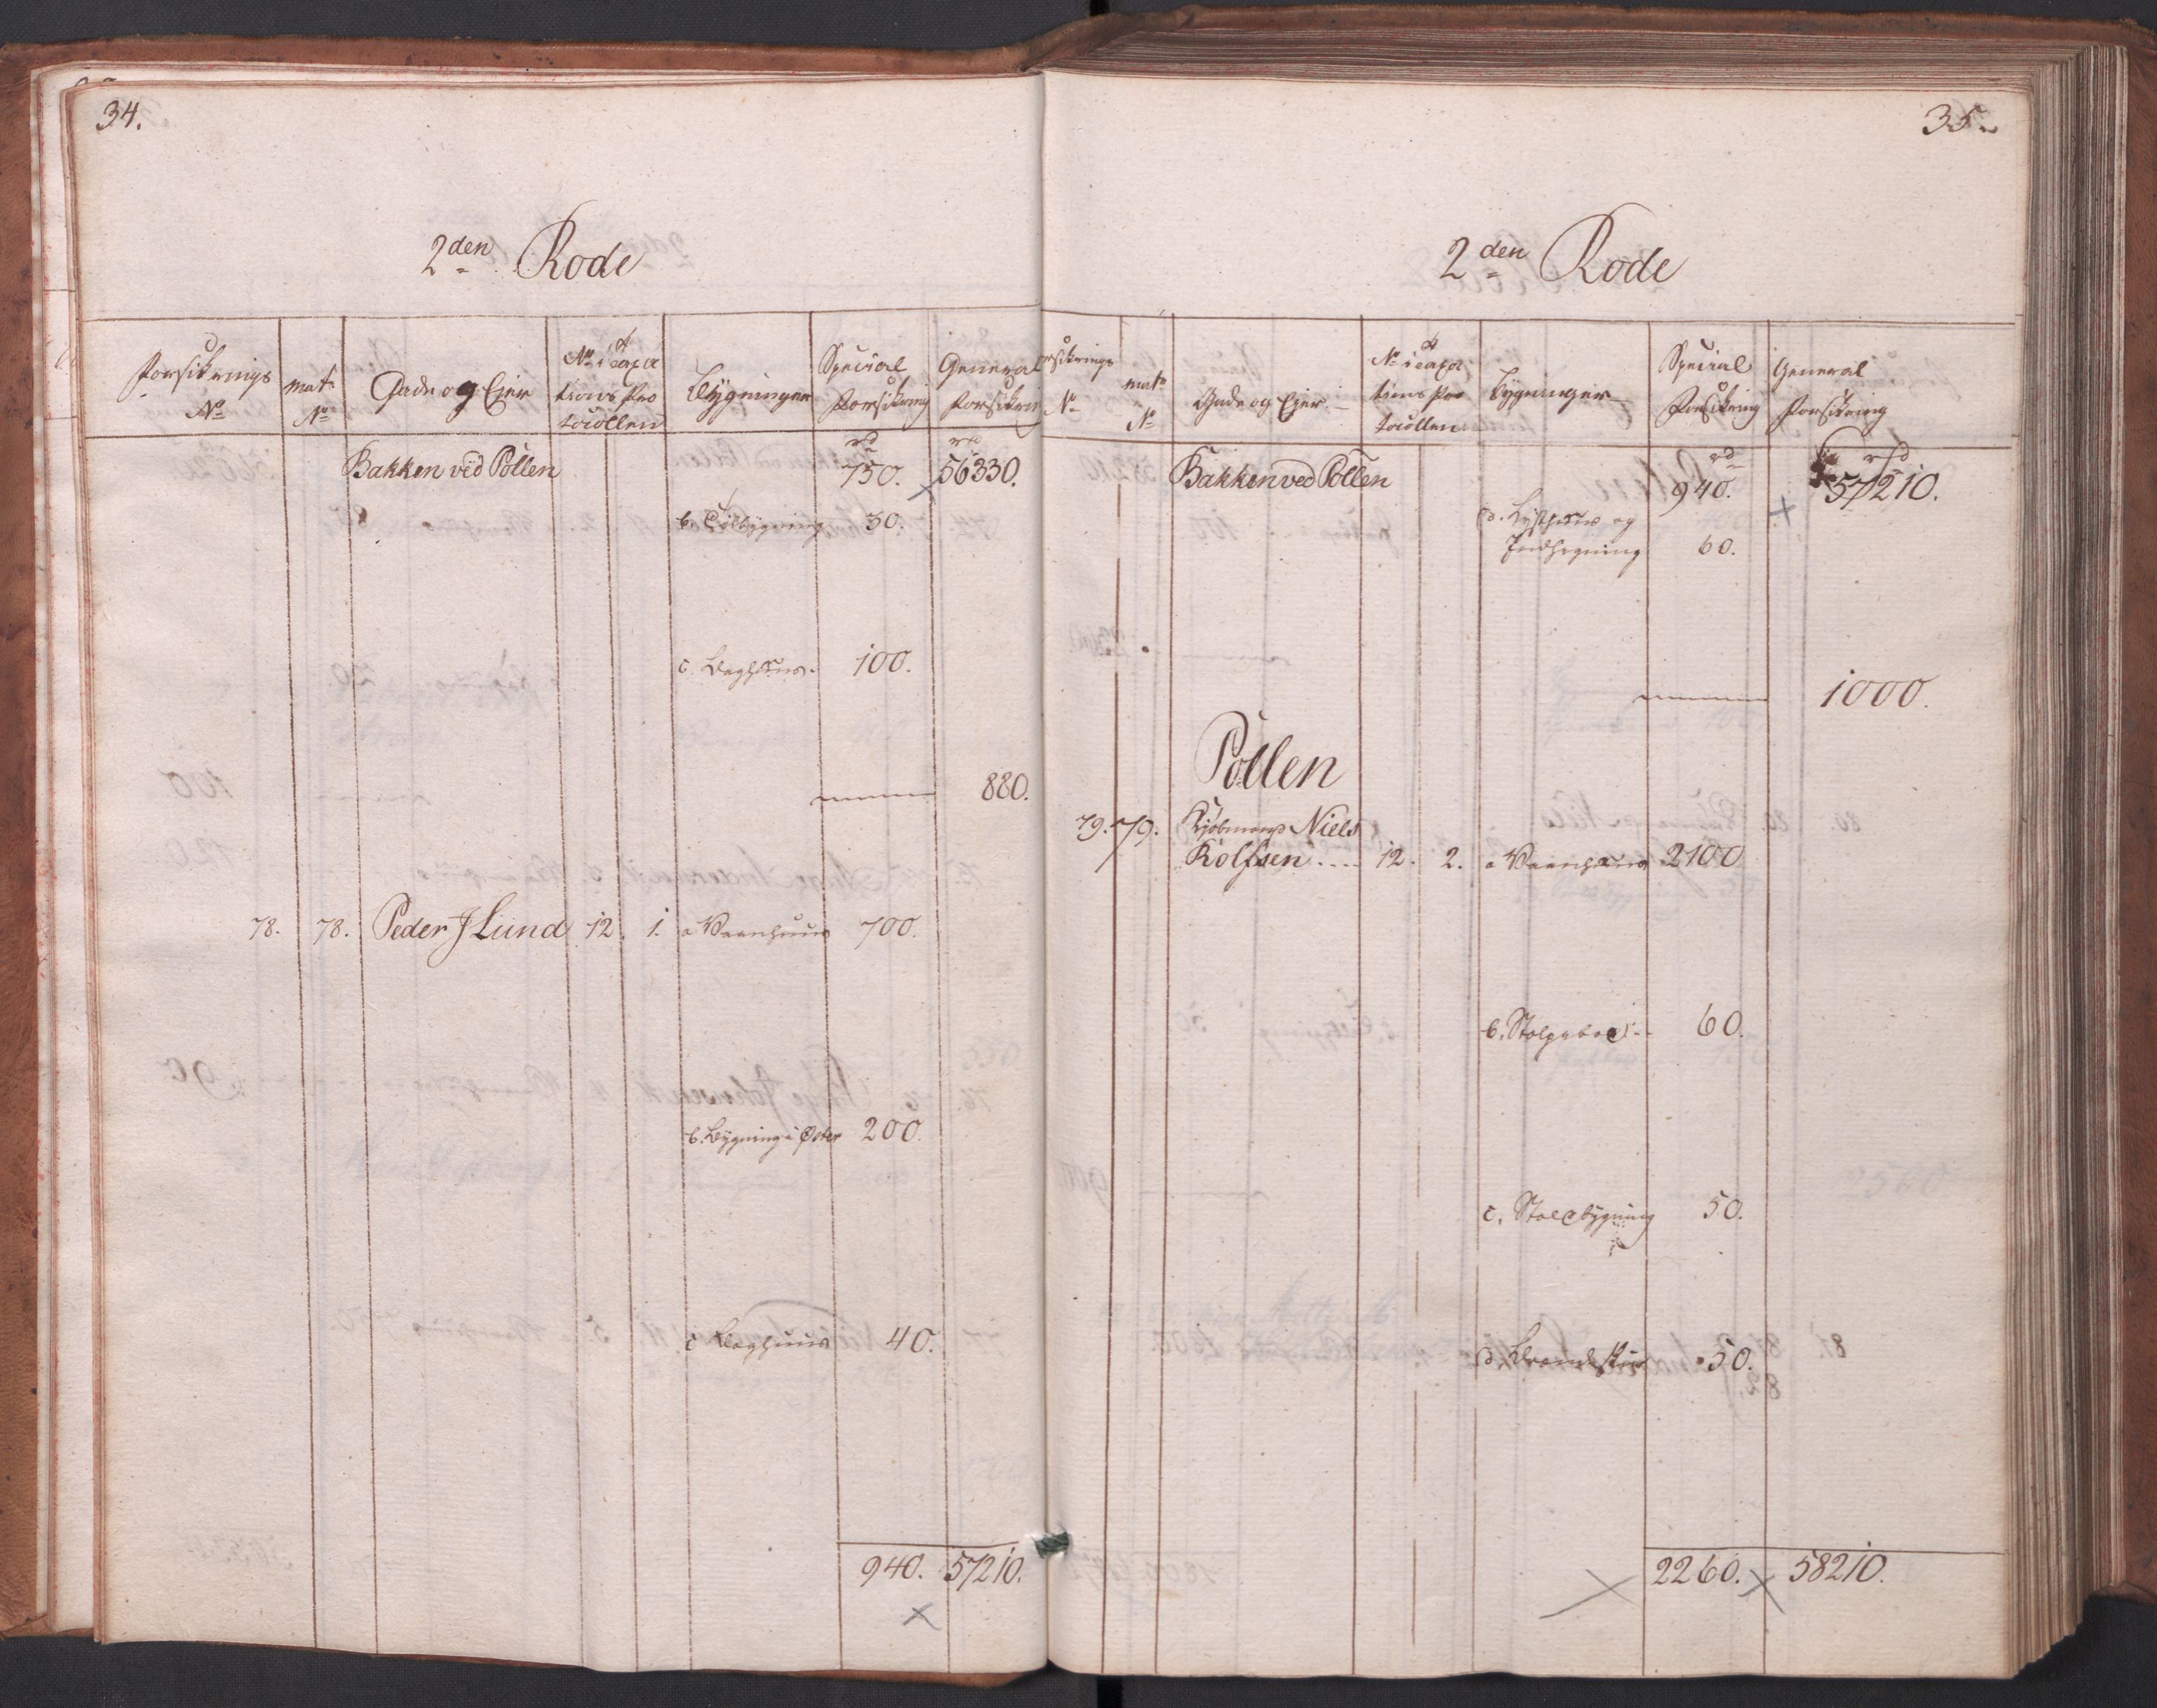 34.
2den Rode
Forsikrings No
matr No
Gade og Ejer
No i Taxa
tions Pro
tocollen
Bygninger
Special
Forsikring
General
Forsikring
Bakken ved Pollen rd 750. rd 56330.
b. Tilbygning 30.
c. Baghuus 100.
880.
78. 78. Peder J Lund 12. 1. a Vaanhuus 700.
b. Bygning i Øster 200.
c Baghuus 40.
940. 57210.
35.
2den Rode
Forsikrings No
matr No
Gade og Ejer
No i Taxa
tions Pro
tocollen
Bygninger
Special
Forsikring
General
Forsikring
Bakken ved Pollen rd 940. rd 57210.
d. Lysthuus og
Indhegning 60.
1000.
Pollen
79. 79. Kjøbmand Niels
Rolfsen .... 12. 2. a Vaanhuus 2100
b. Stolpeboe 60.
c. bygning 50.
d. 50.
2260. 58210.